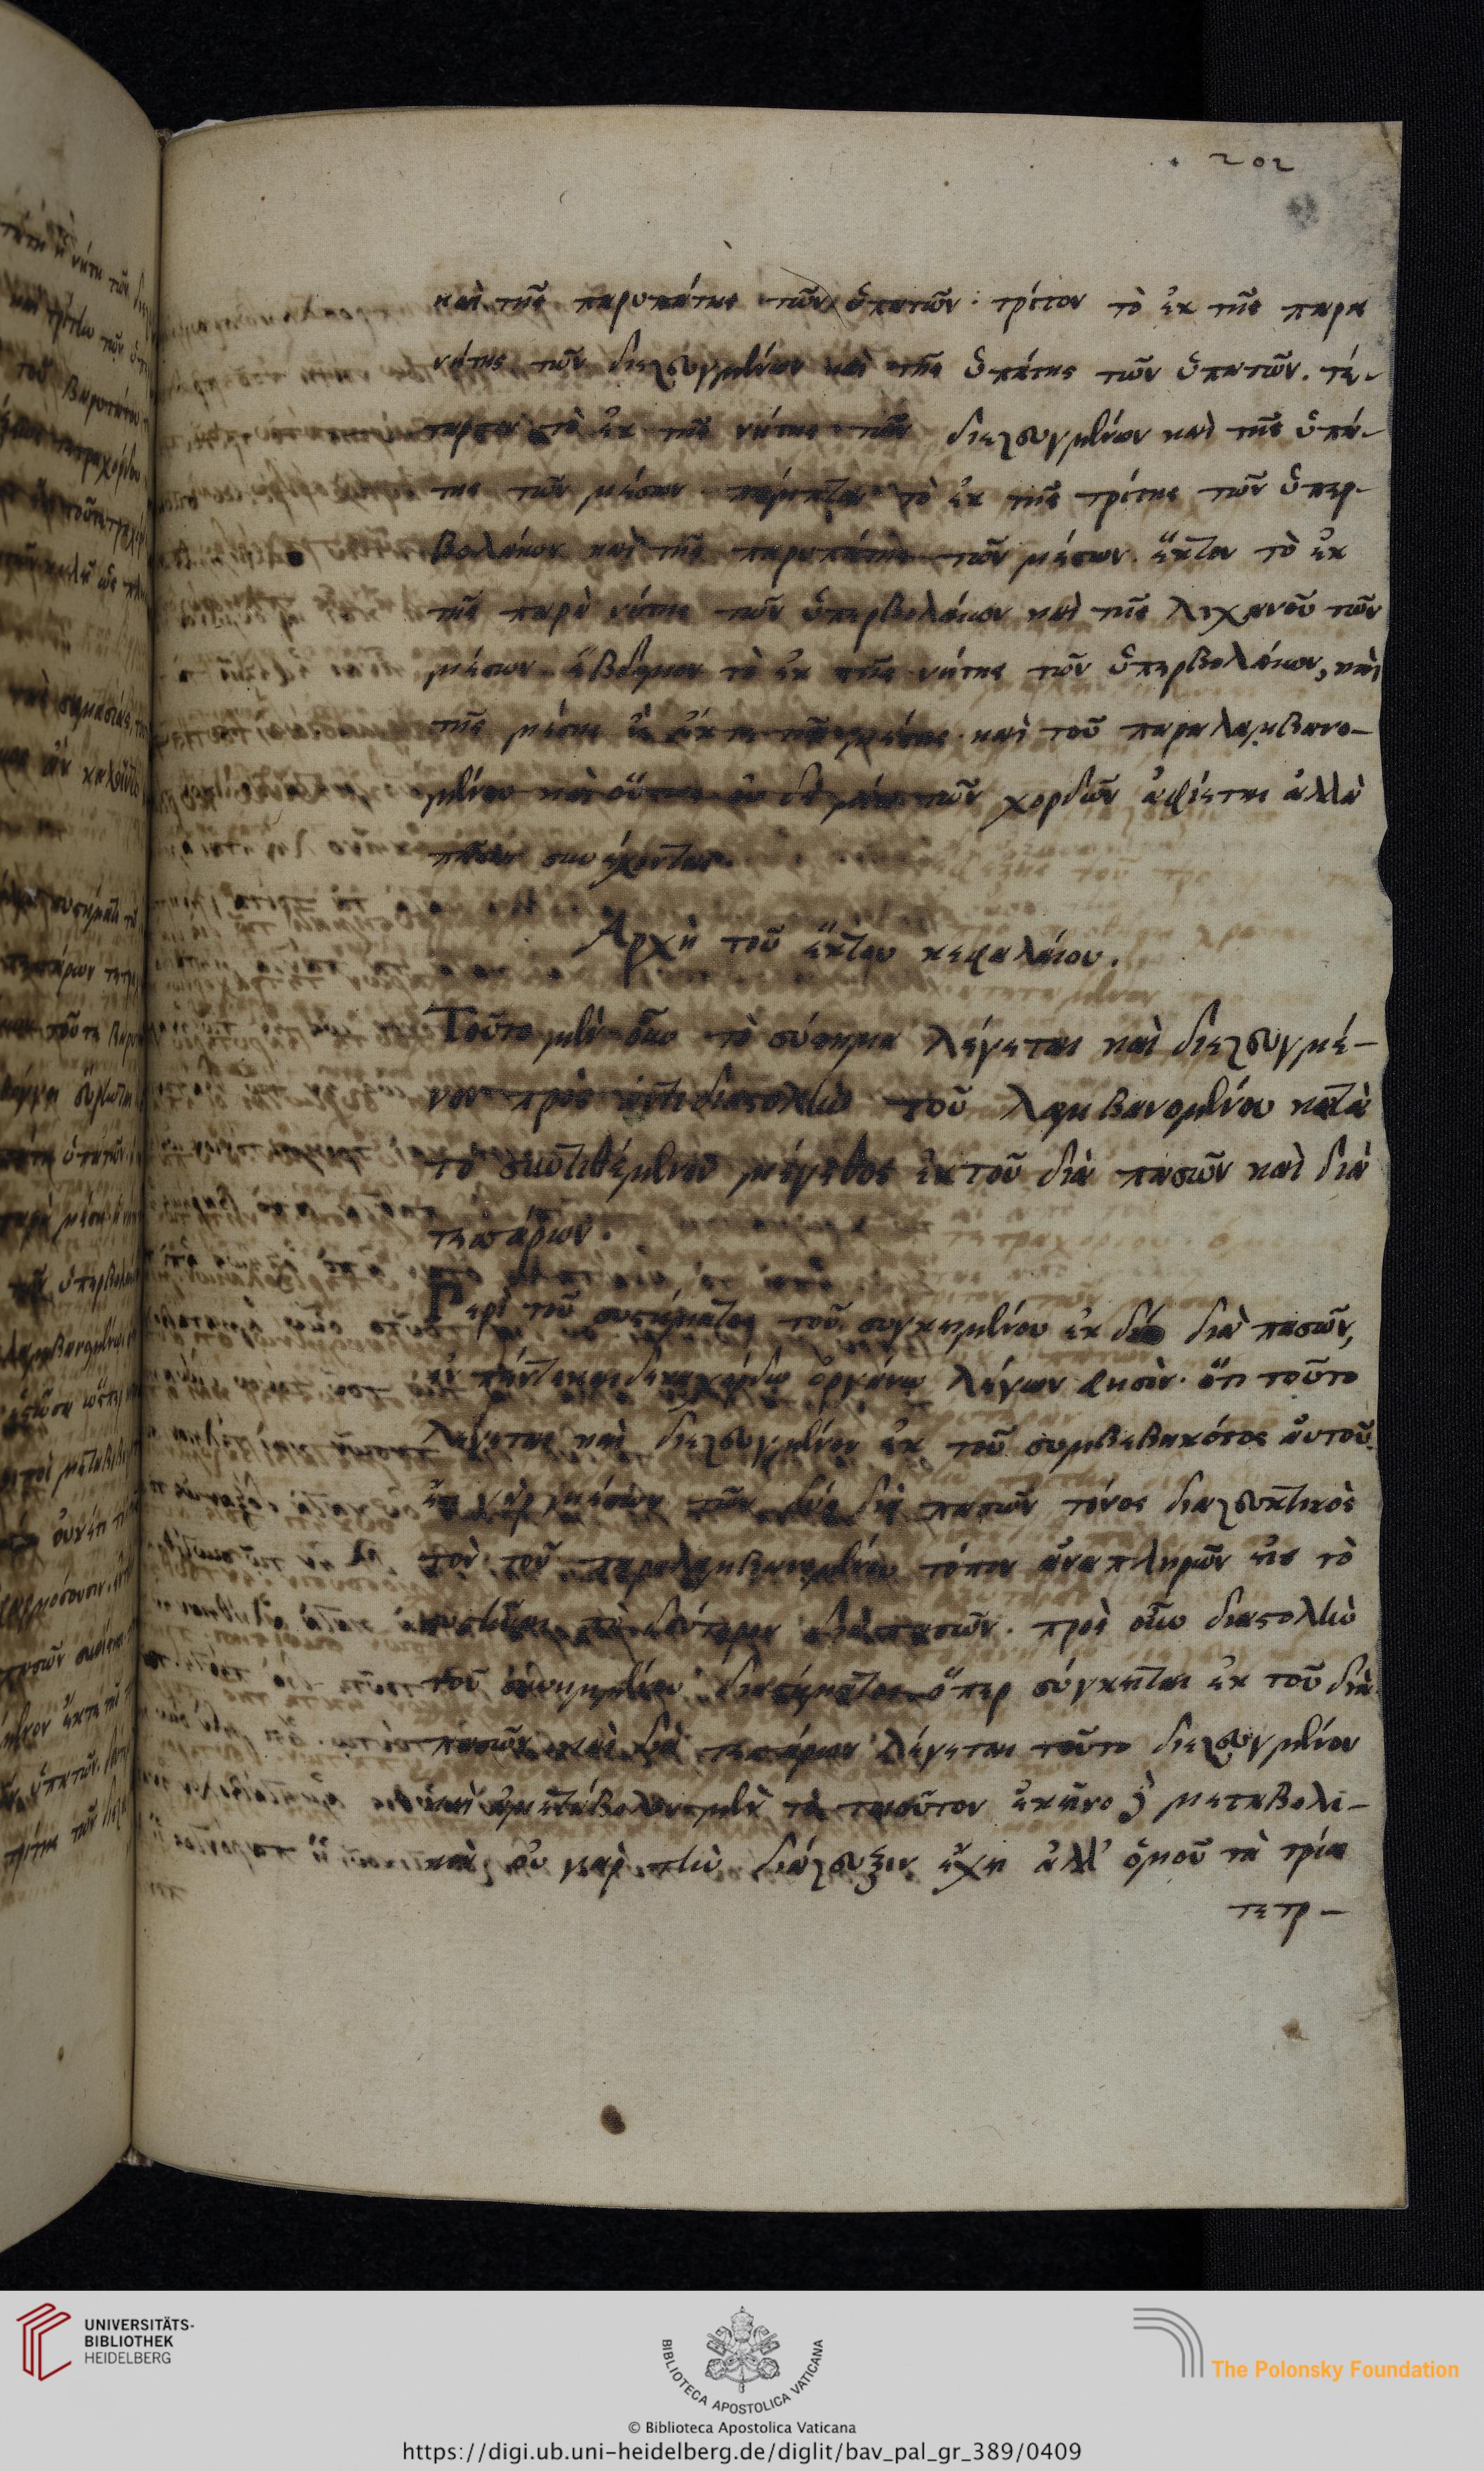 202
καὶ τῆς παρυπάτης τῶν ὑπατῶν· τρίτον τὸ ἐκ τῆς παρα
νήτης τῶν διεζευγμένων καὶ τῆς ὑπάτης τῶν ὑπατῶν. τέ-
ταρτον τὸ ἐκ τῆς νήτης τῶν διεζευγμένων καὶ τῆς ὑπά-
της τῶν μέσων πέμπτον τὸ ἐκ τῆς τρίτης τῶν ὑπερ-
βολαίων καὶ τῆς παρυπάτης τῶν μέσων. ἕκτον τὸ ἐκ
τῆς παρὰ νήτης τῶν ὑπερβολαίων καὶ τῆς λιχανοῦ τῶν
μέσων. ἕβδομον τὸ ἐκ τῆς νήτης τῶν ὑπερβολαίων, καὶ
τῆς μέσης ἐκ τῆς μέσης καὶ τοῦ παραλαμβανο-
μένου καὶ οὕτως οὐδεμία τῶν χορδῶν ἀφίεται ἀλλὰ
πᾶσαι συνέχονται.
Ἀρχὴ τοῦ ἕκτου κεφαλαίου.
Τοῦτο μὲν οὖν τὸ σύστημα λέγεται καὶ διεζευγμέ-
νον πρὸς ἀντιδιαστολὴν τοῦ λαμβανομένου κατὰ
τὸ συντιθέμενον μέγεθος ἐκ τοῦ διὰ πασῶν καὶ διὰ
τεσσάρων.
Περὶ τοῦ συστήματος τοῦ συγκειμένου ἐκ δύο διὰ πασῶν,
ἐν πεντεκαιδεκαχόρδῳ ὀργάνῳ λέγων φησὶν· ὅτι τοῦτο
λέγεται καὶ διεζευγμένον ἐκ τοῦ συμβεβηκότος αὐτοῦ.
τῶν δύο διὰ πασῶν τόνος διαζευκτικὸς
τὸν τοῦ παραλαμβανομένου τόπον ἀναπληρῶν εἰς τὸ
συστῆσαι τὸ δεύτερον διὰ πασῶν. πρὸς οὖν διαστολὴν
τοῦ συνημμένου διαστήματος ὅπερ σύγκειται ἐκ τοῦ διὰ
πασῶν καὶ διὰ τεσσάρων λέγεται τοῦτο διεζευγμένον
καὶ ἀμετάβολον μὲν τὸ τοιοῦτον ἐκεῖνο δὲ μεταβολι-
κὸν οὐ γὰρ τὴν διάζευξιν ἔχει ἀλλ' ὁμοῦ τὰ τρία
τετρ-
UNIVERSITÄTS-
BIBLIOTHEK
HEIDELBERG
BIBLIOTECA APOSTOLICA VATICANA
The Polonsky Foundation
© Biblioteca Apostolica Vaticana
https://digi.ub.uni-heidelberg.de/diglit/bav_pal_gr_389/0409